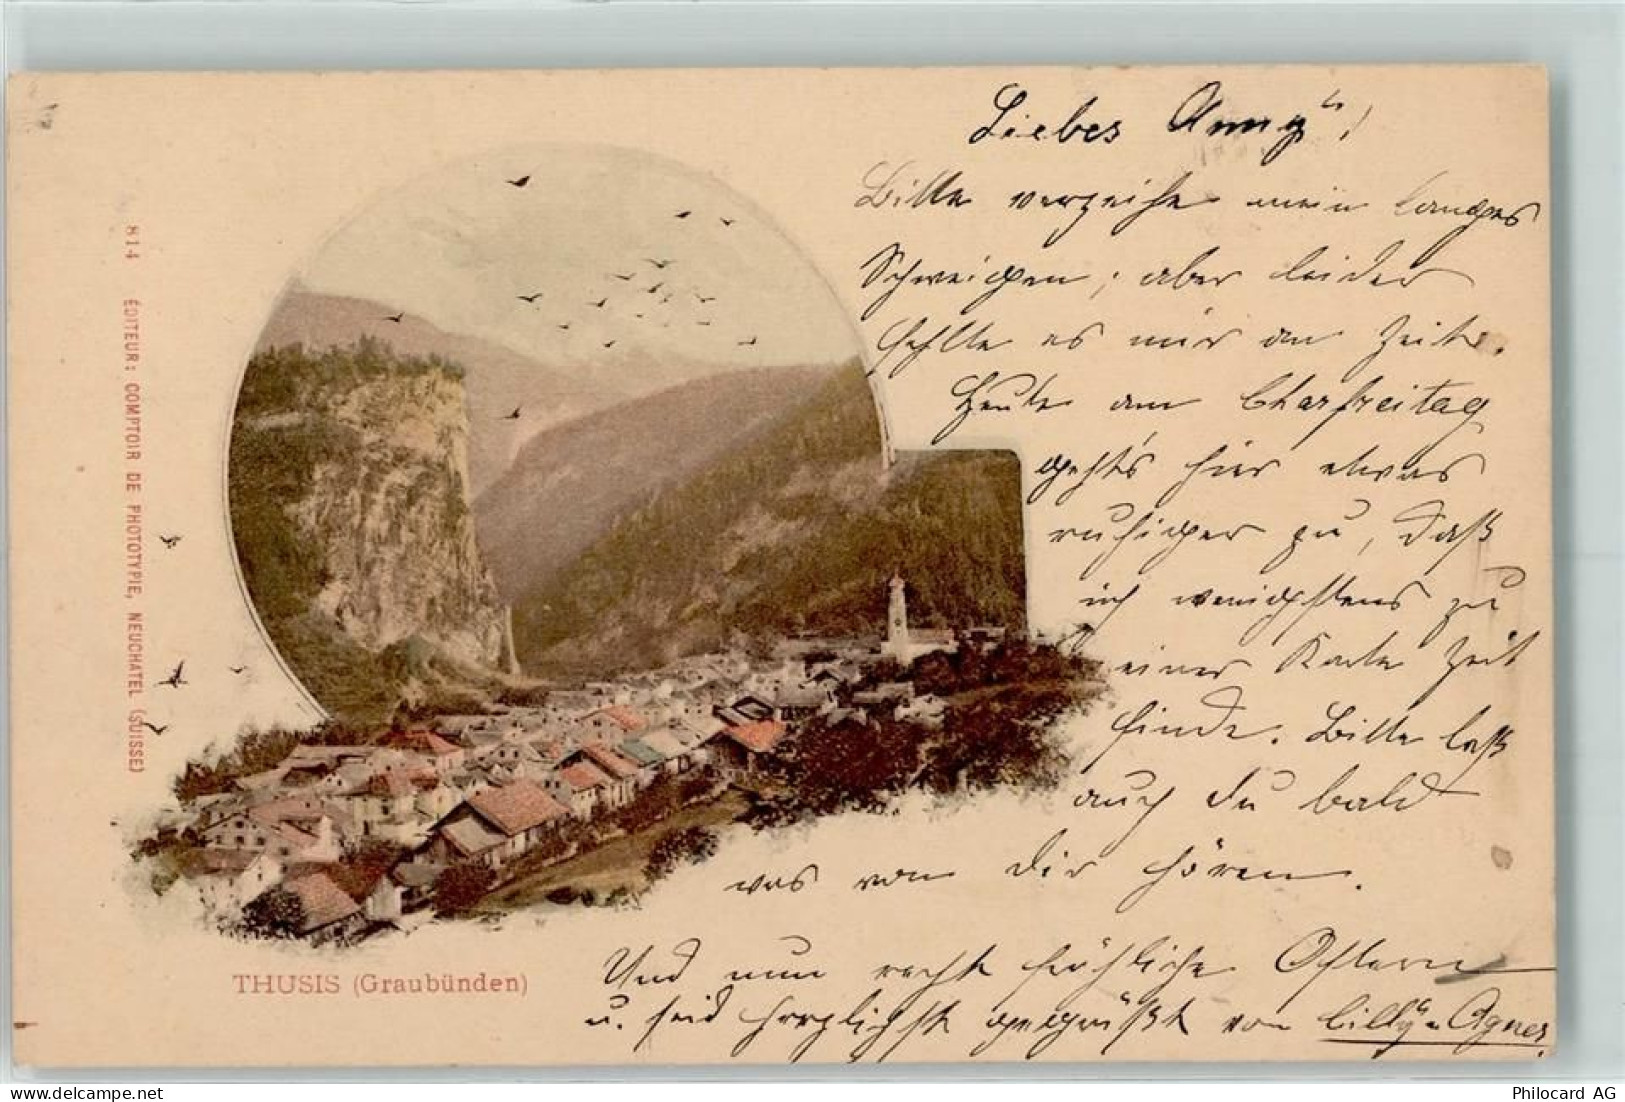 Liebes Anny!
Bitte verzeihe mein langes
Schweigen; aber leider
fehlte es mir an Zeit.
Heute am Charfreitag
geht's hier etwas
ruhiger zu, daß
ich wenigstens zu
einer Karte Zeit
finde. Bitte laß
auch du bald
was von dir hören.
Und nun recht fröhliche Ostern
u. seid herzlichst gegrüßt von Cilly u Agnes.
THUSIS (Graubünden)
814 ÉDITEUR: COMPTOIR DE PHOTOTYPIE, NEUCHATEL (SUISSE)
Philocard AG